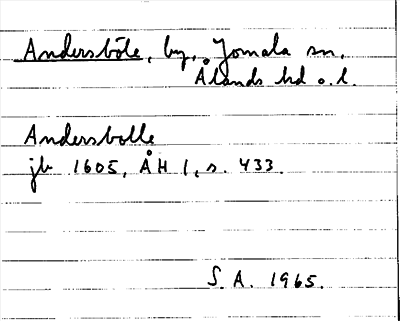 Andersböle, by, Jomala sn,
Ålands hd o. l.
Andersbolle
jb 1605, ÅH 1, s. 433.
S. A. 1965.